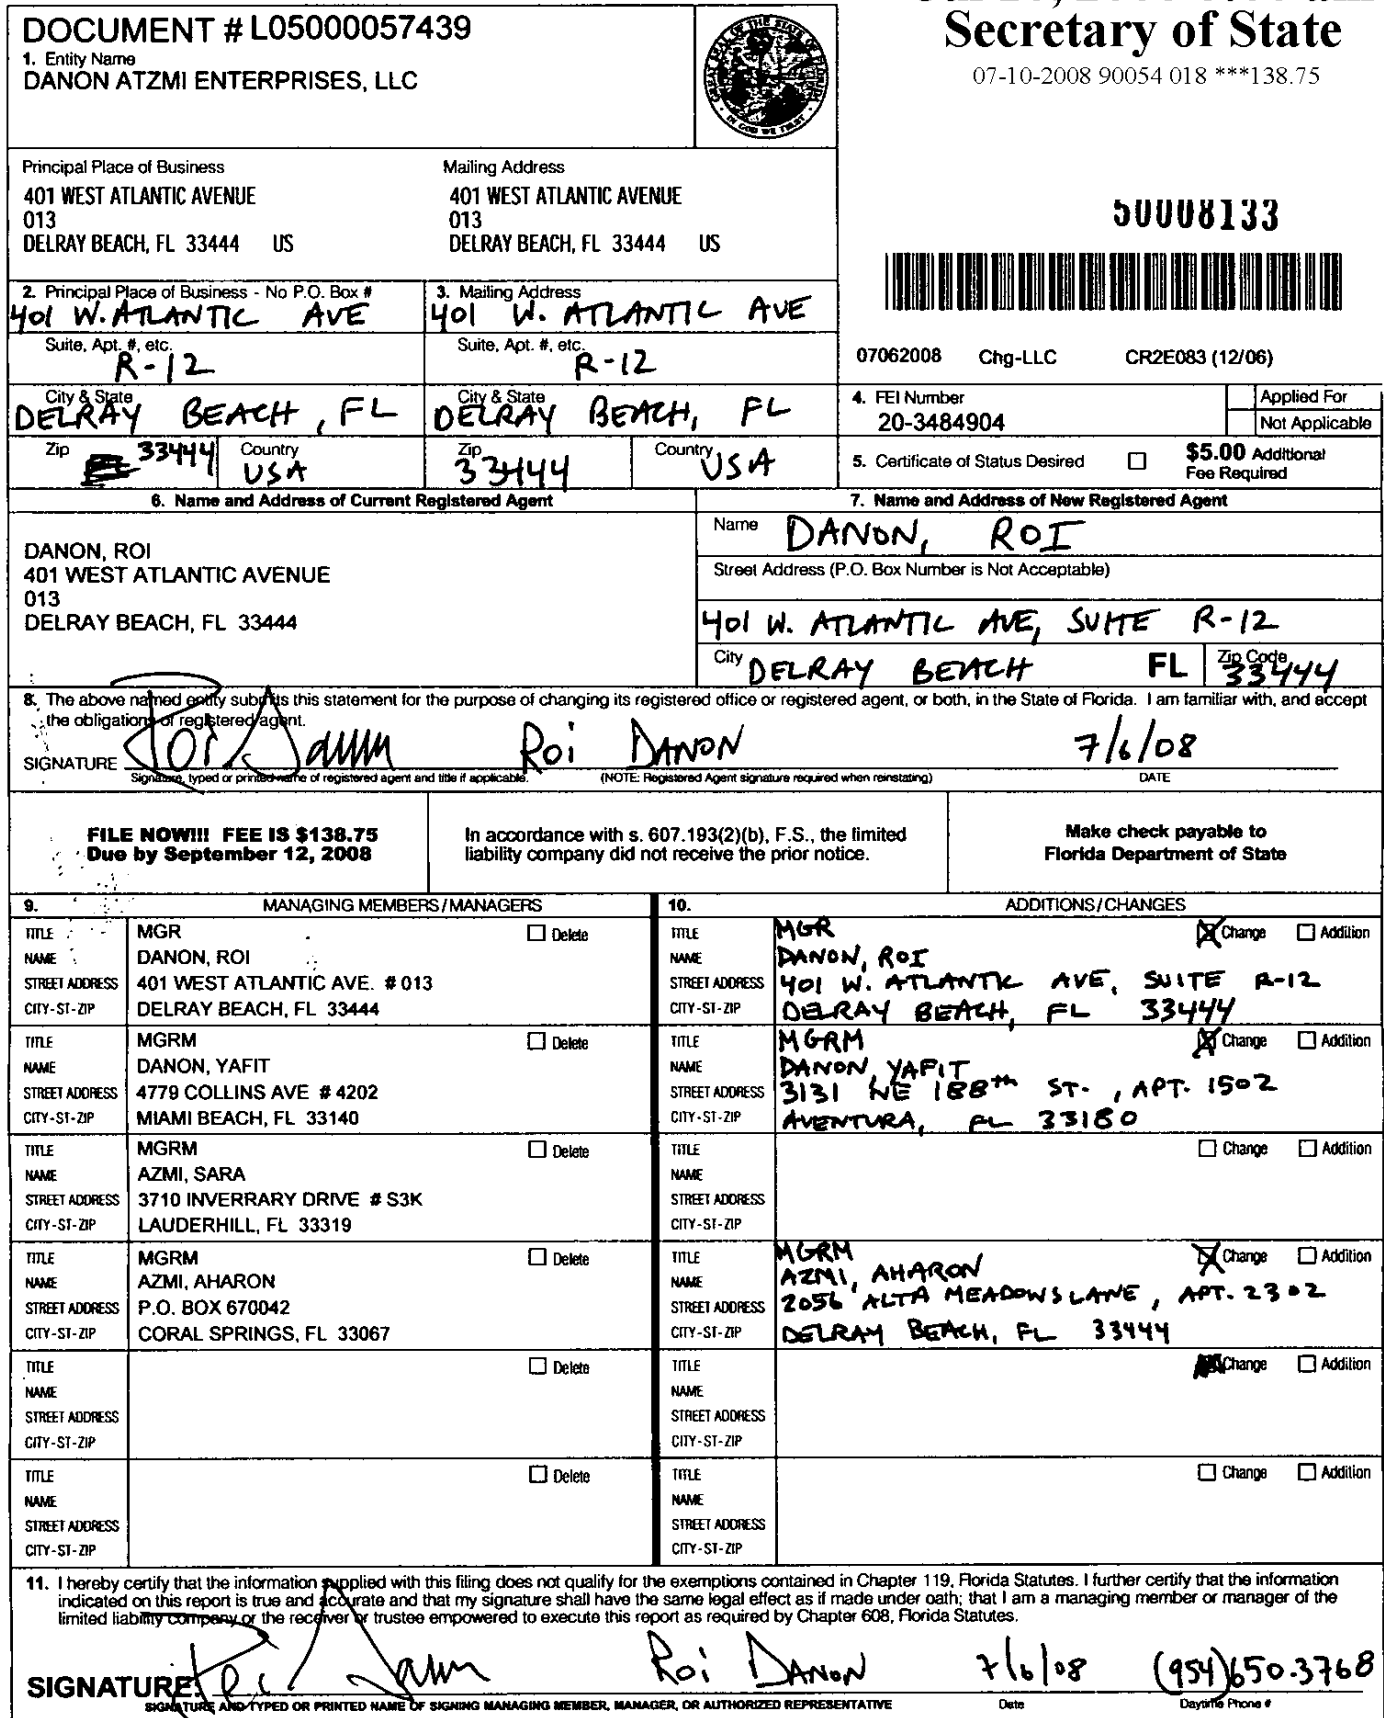 DOCUMENT # L05000057439
1. Entity Name
DANON ATZMI ENTERPRISES, LLC
GREAT SEAL OF THE STATE OF FLORIDA
IN GOD WE TRUST
Secretary of State
07-10-2008 90054 018 ***138.75
Principal Place of Business
401 WEST ATLANTIC AVENUE
013
DELRAY BEACH, FL 33444 US
Mailing Address
401 WEST ATLANTIC AVENUE
013
DELRAY BEACH, FL 33444 US
50008133
2. Principal Place of Business - No P.O. Box #
401 W. ATLANTIC AVE
3. Mailing Address
401 W. ATLANTIC AVE
Suite, Apt. #, etc.
R-12
Suite, Apt. #, etc.
R-12
07062008 Chg-LLC CR2E083 (12/06)
City & State
DELRAY BEACH, FL
City & State
DELRAY BEACH, FL
4. FEI Number
20-3484904
Applied For
Not Applicable
Zip
33444
Country
USA
Zip
33444
Country
USA
5. Certificate of Status Desired
$5.00 Additional
Fee Required
6. Name and Address of Current Registered Agent
DANON, ROI
401 WEST ATLANTIC AVENUE
013
DELRAY BEACH, FL 33444
7. Name and Address of New Registered Agent
Name DANON, ROI
Street Address (P.O. Box Number is Not Acceptable)
401 W. ATLANTIC AVE, SUITE R-12
City DELRAY BEACH FL Zip Code 33444
8. The above named entity submits this statement for the purpose of changing its registered office or registered agent, or both, in the State of Florida. I am familiar with, and accept
the obligations of registered agent.
SIGNATURE Roi Danon Roi DANON 7/6/08
Signature, typed or printed name of registered agent and title if applicable. (NOTE: Registered Agent signature required when reinstating) DATE
FILE NOW!!! FEE IS $138.75
Due by September 12, 2008
In accordance with s. 607.193(2)(b), F.S., the limited
liability company did not receive the prior notice.
Make check payable to
Florida Department of State
9. MANAGING MEMBERS/MANAGERS
TITLE MGR Delete
NAME DANON, ROI
STREET ADDRESS 401 WEST ATLANTIC AVE. # 013
CITY-ST-ZIP DELRAY BEACH, FL 33444
TITLE MGRM Delete
NAME DANON, YAFIT
STREET ADDRESS 4779 COLLINS AVE # 4202
CITY-ST-ZIP MIAMI BEACH, FL 33140
TITLE MGRM Delete
NAME AZMI, SARA
STREET ADDRESS 3710 INVERRARY DRIVE # S3K
CITY-ST-ZIP LAUDERHILL, FL 33319
TITLE MGRM Delete
NAME AZMI, AHARON
STREET ADDRESS P.O. BOX 670042
CITY-ST-ZIP CORAL SPRINGS, FL 33067
TITLE Delete
NAME
STREET ADDRESS
CITY-ST-ZIP
TITLE Delete
NAME
STREET ADDRESS
CITY-ST-ZIP
10. ADDITIONS/CHANGES
TITLE MGR Change Addition
NAME DANON, ROI
STREET ADDRESS 401 W. ATLANTIC AVE, SUITE R-12
CITY-ST-ZIP DELRAY BEACH, FL 33444
TITLE MGRM Change Addition
NAME DANON, YAFIT
STREET ADDRESS 3131 NE 188th ST., APT. 1502
CITY-ST-ZIP AVENTURA, FL 33180
TITLE Change Addition
NAME
STREET ADDRESS
CITY-ST-ZIP
TITLE MGRM Change Addition
NAME AZMI, AHARON
STREET ADDRESS 2056 ALTA MEADOWS LANE, APT. 2302
CITY-ST-ZIP DELRAY BEACH, FL 33444
TITLE Change Addition
NAME
STREET ADDRESS
CITY-ST-ZIP
TITLE Change Addition
NAME
STREET ADDRESS
CITY-ST-ZIP
11. I hereby certify that the information supplied with this filing does not qualify for the exemptions contained in Chapter 119, Florida Statutes. I further certify that the information
indicated on this report is true and accurate and that my signature shall have the same legal effect as if made under oath; that I am a managing member or manager of the
limited liability company or the receiver or trustee empowered to execute this report as required by Chapter 608, Florida Statutes.
SIGNATURE: Roi Danon Roi DANON 7/6/08 (954)650-3768
SIGNATURE AND TYPED OR PRINTED NAME OF SIGNING MANAGING MEMBER, MANAGER, OR AUTHORIZED REPRESENTATIVE Date Daytime Phone #